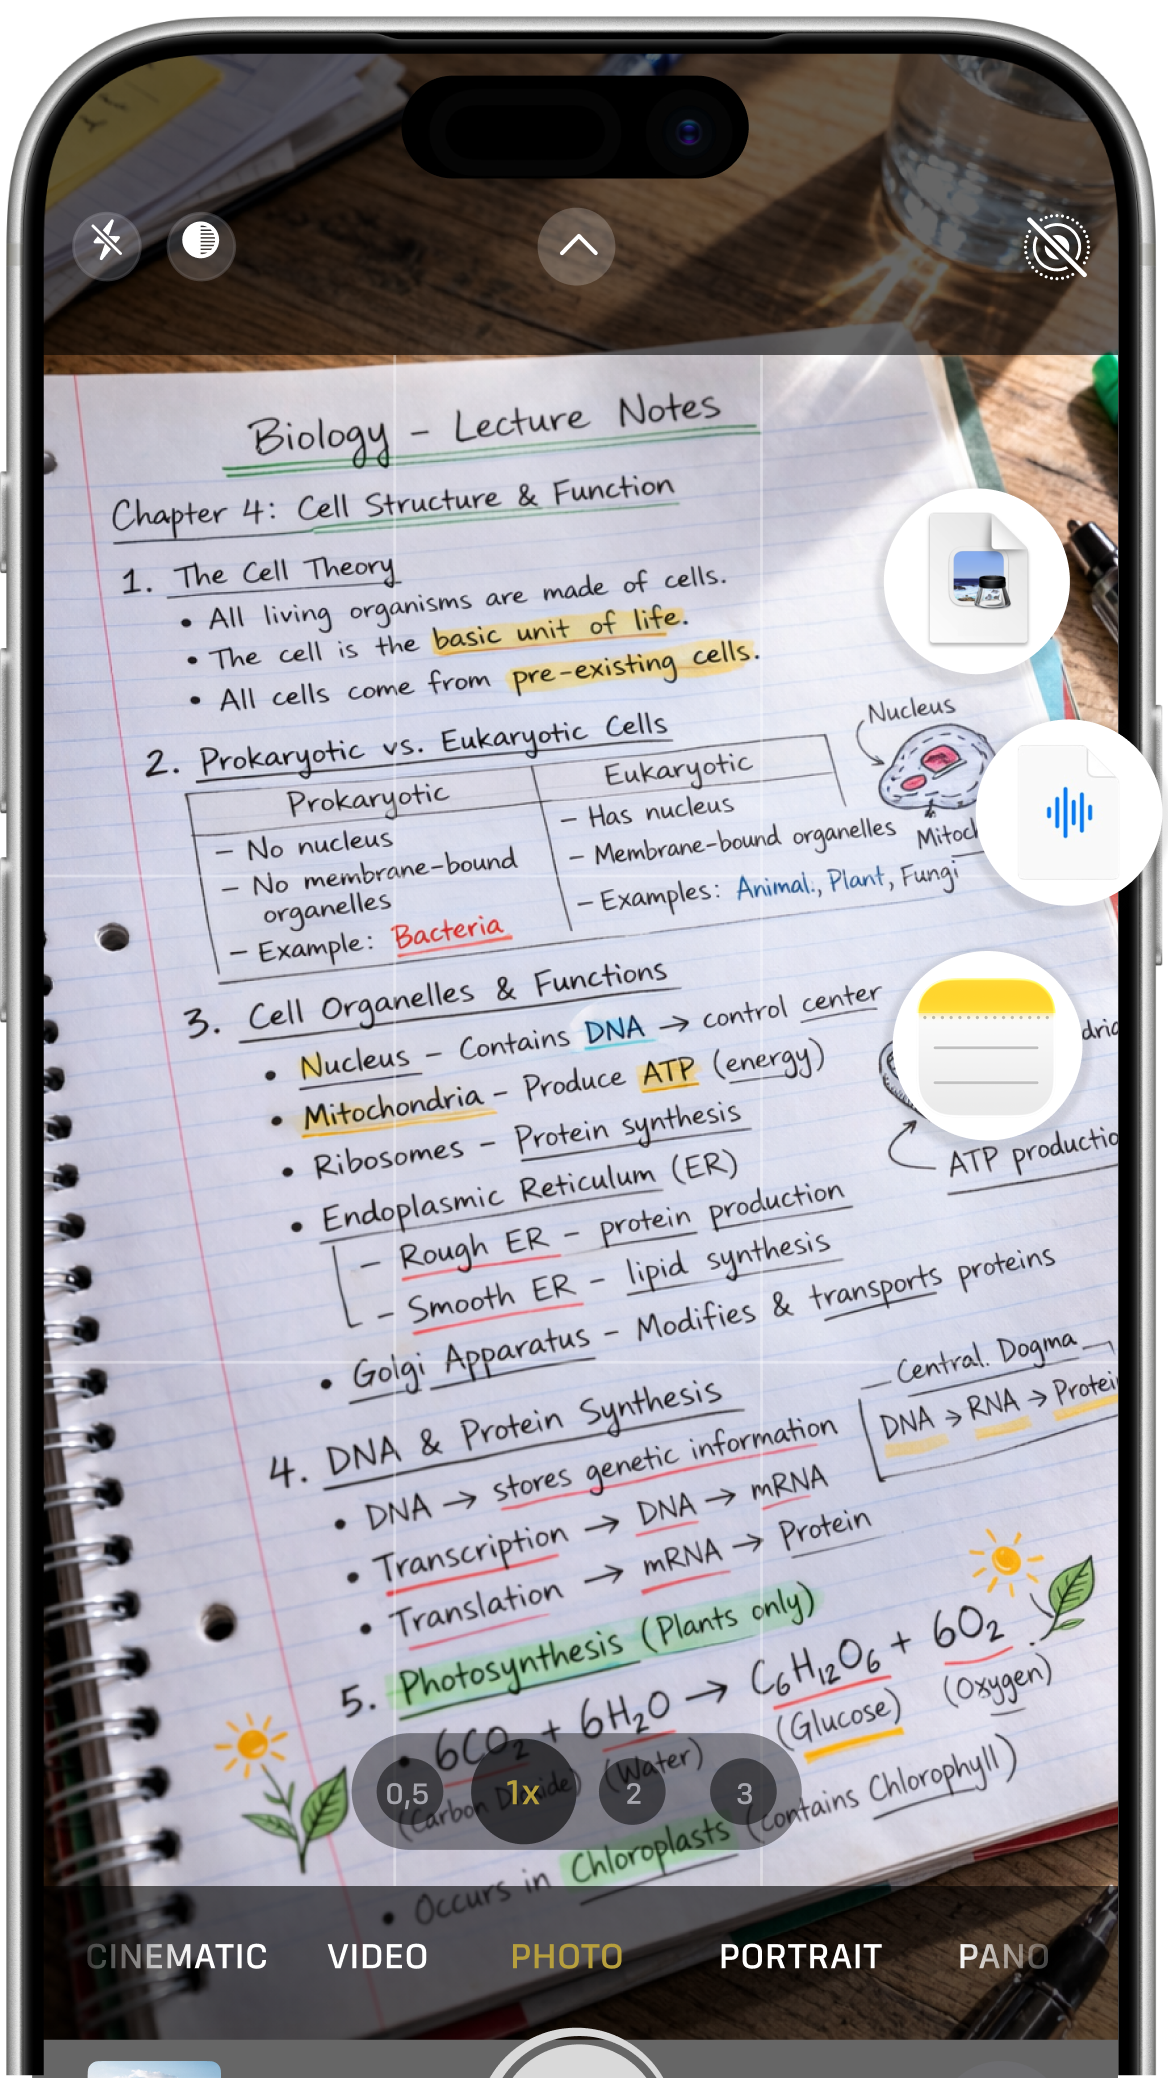 Biology - Lecture Notes
Chapter 4: Cell Structure & Function
1. The Cell Theory
• All living organisms are made of cells.
• The cell is the basic unit of life.
• All cells come from pre-existing cells.
2. Prokaryotic vs. Eukaryotic Cells
Prokaryotic
- No nucleus
- No membrane-bound
organelles
- Example: Bacteria
Eukaryotic
- Has nucleus
- Membrane-bound organelles
- Examples: Animal., Plant, Fungi
Nucleus
Mitoch
3. Cell Organelles & Functions
• Nucleus - Contains DNA → control center
• Mitochondria - Produce ATP (energy)
• Ribosomes - Protein synthesis
• Endoplasmic Reticulum (ER)
- Rough ER - protein production
- Smooth ER - lipid synthesis
• Golgi Apparatus - Modifies & transports proteins
dria
ATP productio
4. DNA & Protein Synthesis
• DNA → stores genetic information
• Transcription → DNA → mRNA
• Translation → mRNA → Protein
Central. Dogma
DNA → RNA → Protein
5. Photosynthesis (Plants only)
• 6CO₂ + 6H₂O → C₆H₁₂O₆ + 6O₂
(Carbon Dioxide) (Water) (Glucose) (Oxygen)
• Occurs in Chloroplasts (contains Chlorophyll)
0,5 1x 2 3
CINEMATIC VIDEO PHOTO PORTRAIT PANO